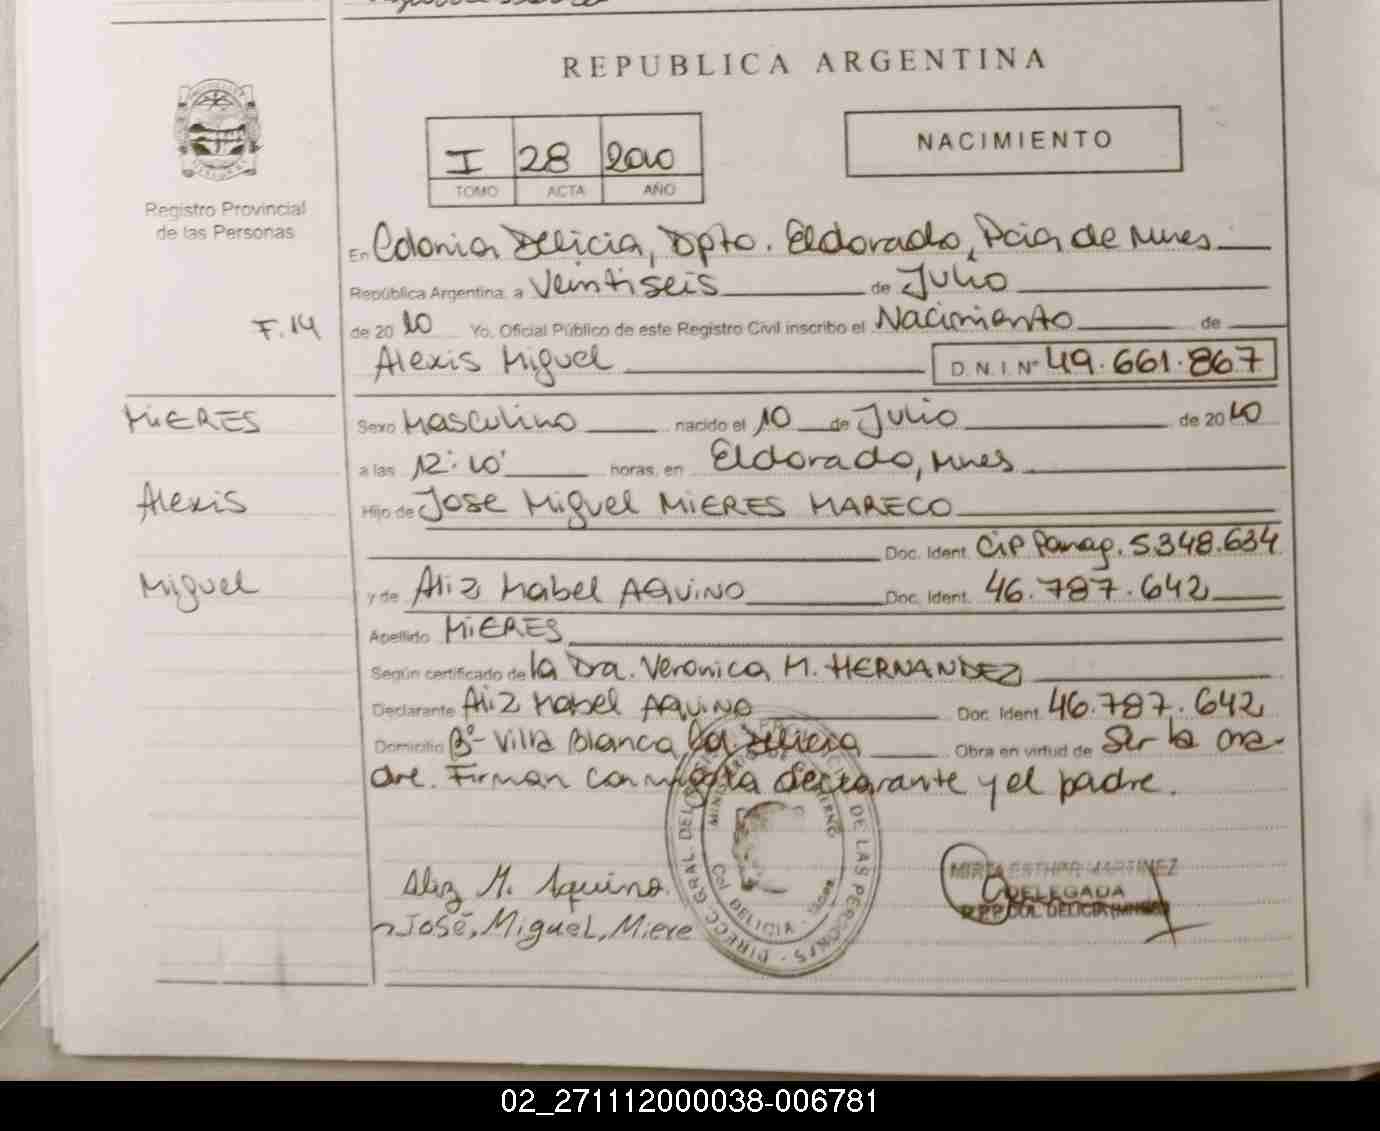 REPUBLICA ARGENTINA
I 28 2010
TOMO ACTA AÑO
NACIMIENTO
Registro Provincial
de las Personas
En Colonia Delicia, Dpto. Eldorado, Pcia de Mnes
República Argentina, a Veintiseis de Julio
F. 14
de 2010 Yo, Oficial Público de este Registro Civil inscribo el Nacimiento de
Alexis Miguel D.N.I. Nº 49.661.867
MiERES
Sexo Masculino nacido el 10 de Julio de 2010
a las 12:10' horas, en Eldorado, Mnes
Alexis
Hijo de Jose Miguel MiERES MARECO
Doc. Ident. CiP Parag. 5.348.634
Miguel
y de Aliz Mabel AQUiNO Doc. Ident. 46.787.642
Apellido MiERES
Según certificado de la Dra. Veronica M. HERNANDEZ
Declarante Aliz Mabel AQUiNO Doc. Ident. 46.787.642
Domicilio Bº- Villa Blanca Col Delicia Obra en virtud de Ser la ma-
dre. Firman conmigo la declarante y el padre.
Aliz M. Aquino
José, Miguel, Miere
DIRECC. GRAL. DEL DE LAS PERSONAS
MINISTERIO DE GOBIERNO
COL DELICIA
MIRTA ESTHER MARTINEZ
DELEGADA
RPP COL DELICIA
02_271112000038-006781